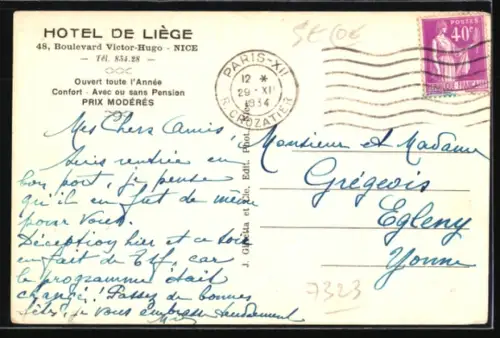 HOTEL DE LIÈGE
48, Boulevard Victor-Hugo - NICE
Tél. 854.28
Ouvert toute l'Année
Confort - Avec ou sans Pension
PRIX MODÉRÉS
PARIS-XII
12 *
29 - XII
1934
R. CROZATIER
POSTES
40c
J. Giletta et Cie, Edit. Phot.
Mes Chers Amis,
suis rentrée en
bon port, je pense
qu'il en fut de même
pour vous.
Déception hier et ce soir
en fait de car
le programme était
changé ! Passez de bonnes
fêtes, je vous embrasse tendrement
Monsieur et Madame
Grégeois
Egleny
Yonne
7323